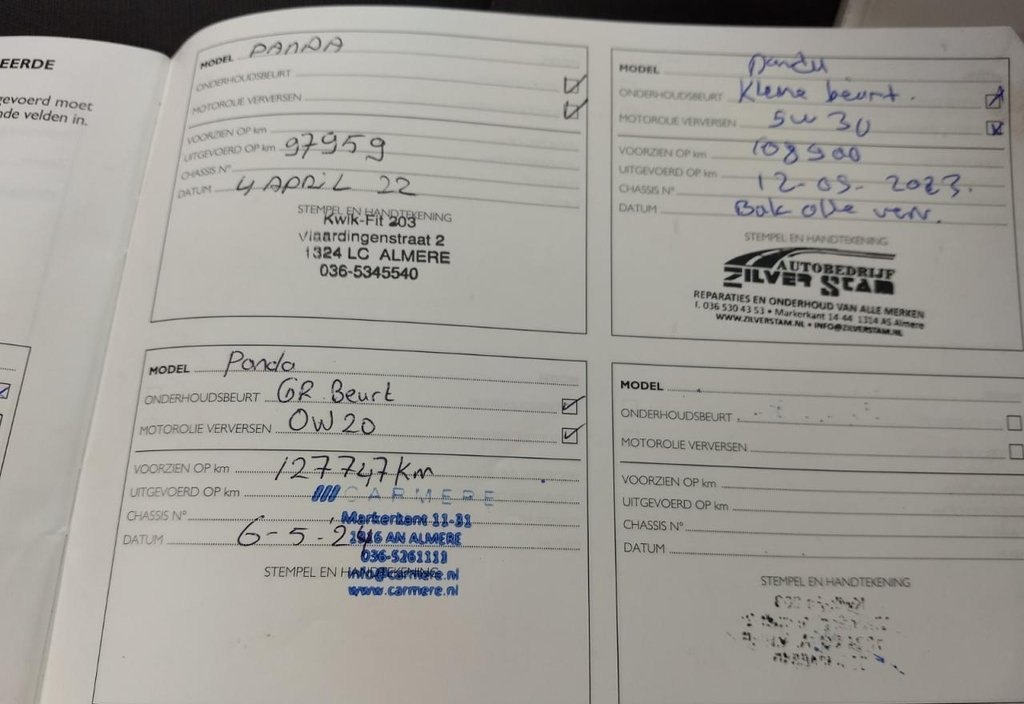 EERDE
gevoerd moet
nde velden in.
MODEL PANDA
ONDERHOUDSBEURT
MOTOROLIE VERVERSEN
VOORZIEN OP km
UITGEVOERD OP km 97959
CHASSIS N°
DATUM 4 APRIL 22
STEMPEL EN HANDTEKENING
Kwik-Fit 203
Vlaardingenstraat 2
1324 LC ALMERE
036-5345540
MODEL Panda
ONDERHOUDSBEURT Kleine beurt.
MOTOROLIE VERVERSEN 5W30
VOORZIEN OP km 108900
UITGEVOERD OP km
CHASSIS N° 12-09-2023.
DATUM Bak olie verv.
STEMPEL EN HANDTEKENING
AUTOBEDRIJF
ZILVER STAM
REPARATIES EN ONDERHOUD VAN ALLE MERKEN
T. 036 530 43 53 • Markerkant 14 44 1314 AS Almere
WWW.ZILVERSTAM.NL • INFO@ZILVERSTAM.NL
MODEL Panda
ONDERHOUDSBEURT GR Beurt
MOTOROLIE VERVERSEN 0W20
VOORZIEN OP km 127747km
UITGEVOERD OP km CARMERE
CHASSIS N° Markerkant 11-31
DATUM 6-5-'24 AN ALMERE
036-5261111
STEMPEL EN HANDTEKENING
info@carmere.nl
www.carmere.nl
MODEL
ONDERHOUDSBEURT
MOTOROLIE VERVERSEN
VOORZIEN OP km
UITGEVOERD OP km
CHASSIS N°
DATUM
STEMPEL EN HANDTEKENING